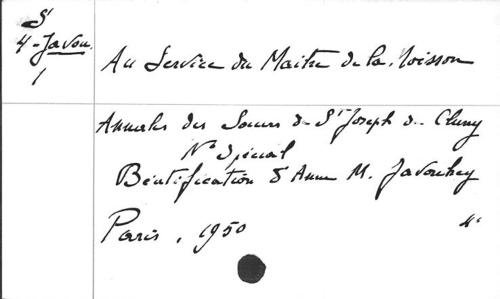 S
4-Javou.
1
Au Service du Maitre de la Moisson
Annales des Soeurs de St Joseph de Cluny
No Spécial
Béatification d Anne M. Javouhey
Paris, 1950 4°